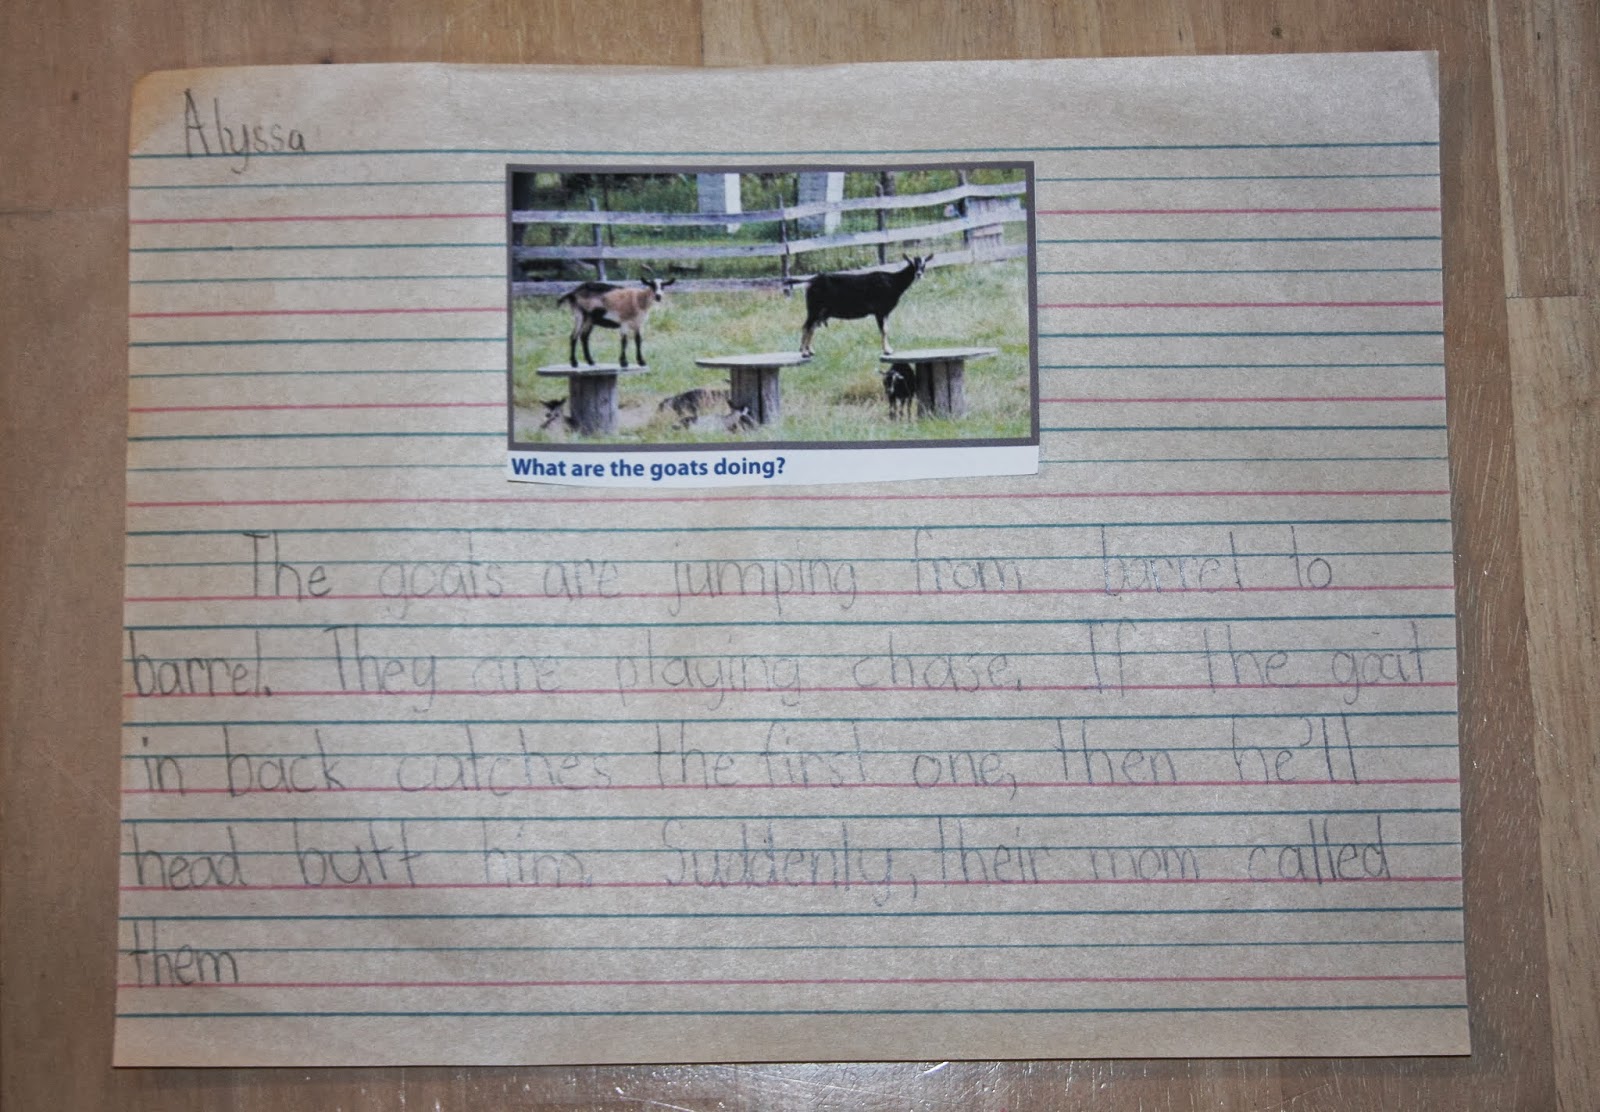 Alyssa
What are the goats doing?
The goats are jumping from barrel to
barrel. They are playing chase. If the goat
in back catches the first one, then he'll
head butt him. Suddenly, their mom called
them